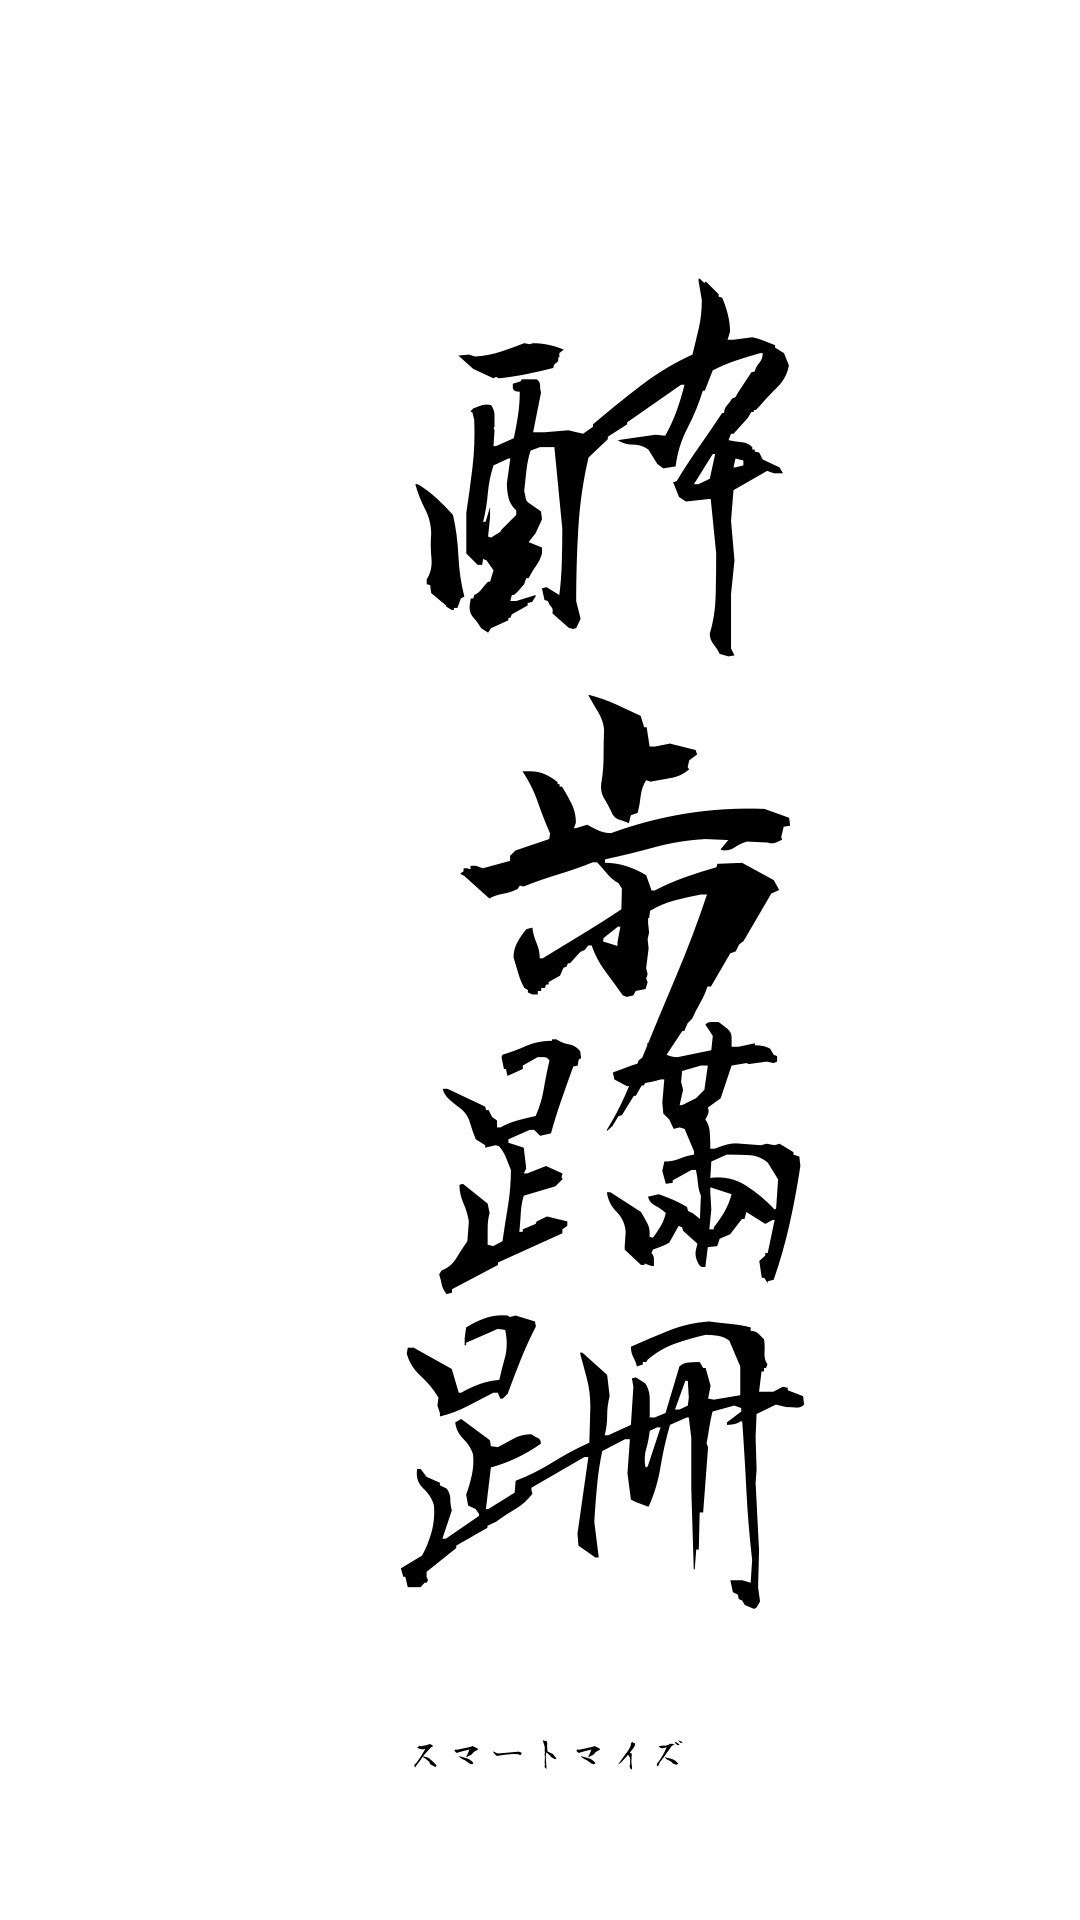 酔歩蹣跚
スマートマイズ